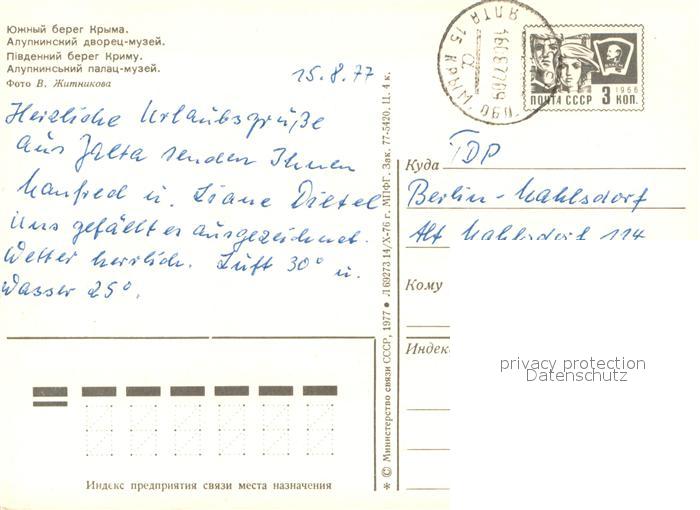 Южный берег Крыма.
Алупкинский дворец-музей.
Південний берег Криму.
Алупкинський палац-музей.
Фото В. Житникова
15.8.77
Herzliche Urlaubsgrüße
aus Jalta senden Ihnen
Manfred u. Liane Dietel
Uns gefällt es ausgezeichnet.
Wetter herrlich. Luft 30° u.
Wasser 25°.
Индекс предприятия связи места назначения
* © Министерство связи СССР, 1977 • Л 69273 14/X-76 г. МПФГ. Зак. 77-5420. Ц. 4 к.
ЯЛТА
15 КРЫМ. ОБЛ.
1966
ПОЧТА СССР 3 КОП.
Куда TDP
Berlin-Mahlsdorf
Alt Mahlsdorf 114
Кому
Индекс
privacy protection
Datenschutz